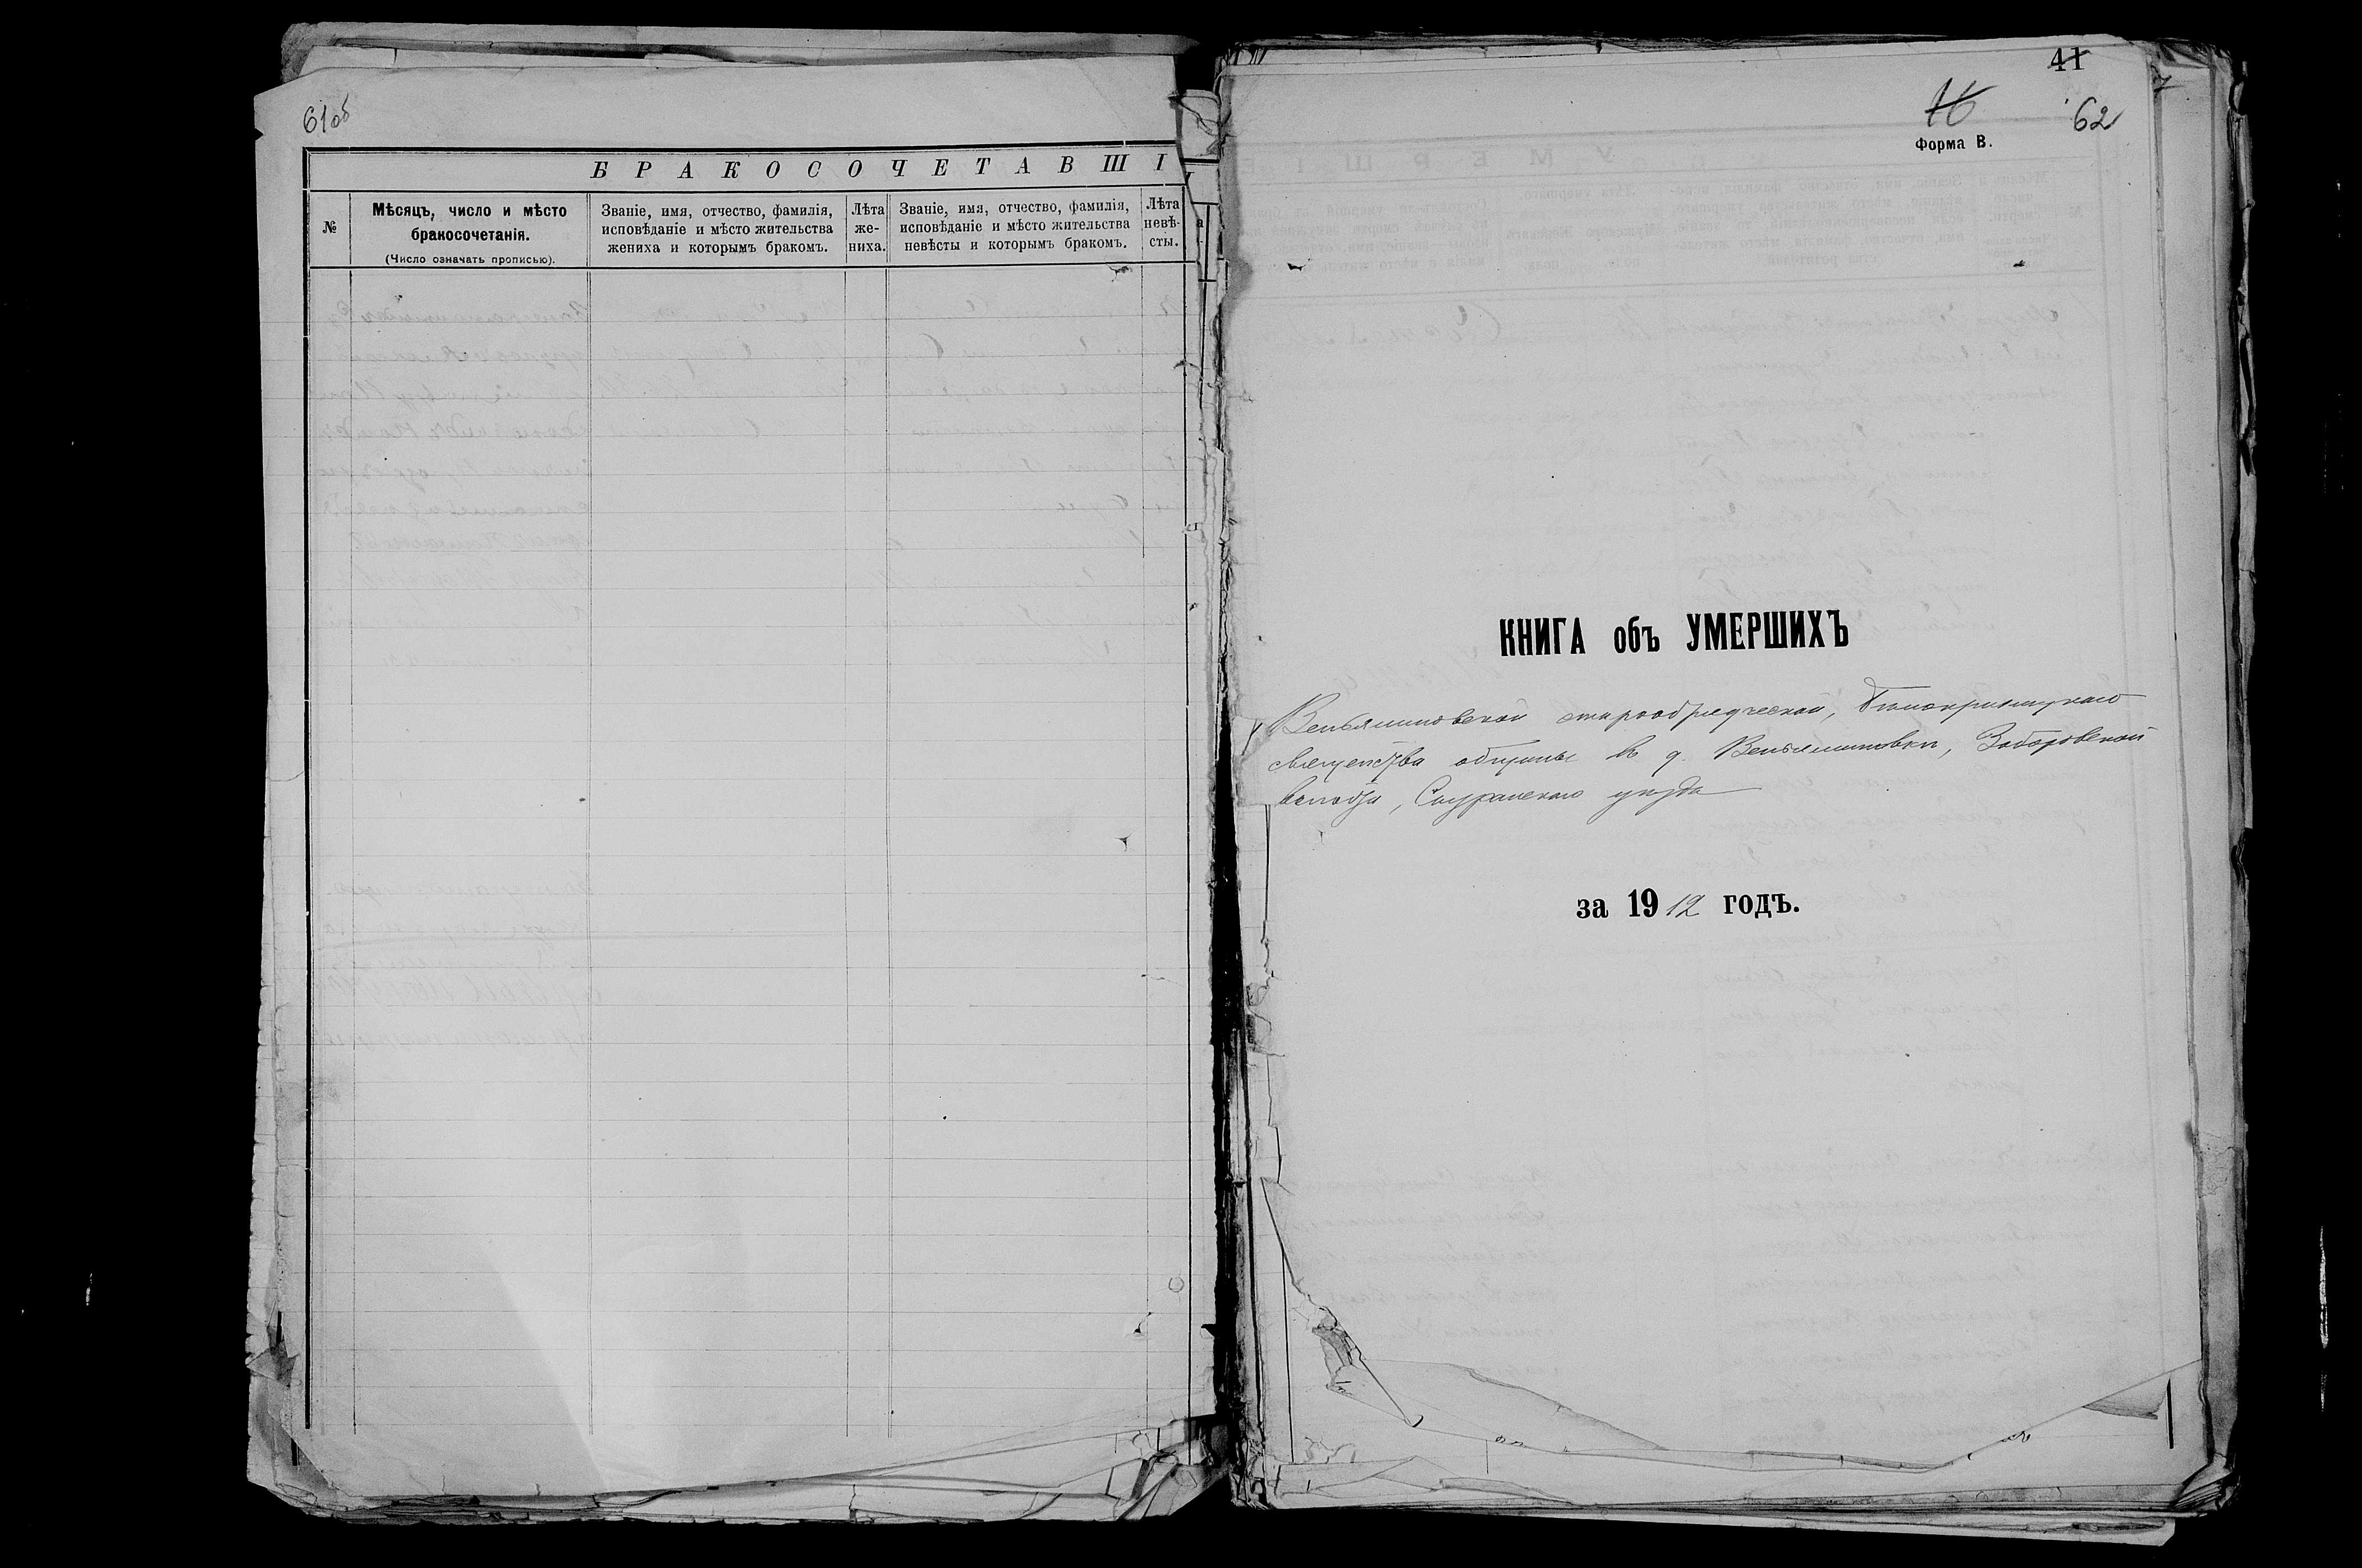 61об
БРАКОСОЧЕТАВШІ
№
Мѣсяцъ, число и мѣсто
бракосочетанія.
(Число означать прописью).
Званіе, имя, отчество, фамилія,
исповѣданіе и мѣсто жительства
жениха и которымъ бракомъ.
Лѣта
же-
ниха.
Званіе, имя, отчество, фамилія,
исповѣданіе и мѣсто жительства
невѣсты и которымъ бракомъ.
Лѣта
невѣ-
сты.
41
16
62
Форма В.
КНИГА объ УМЕРШИХЪ
Веньяминовской старообрядческой, Белокриницкаго
священства общины въ д. Веньяминовкѣ, Заборовской
волости, Сызранскаго уѣзда
за 1912 годъ.